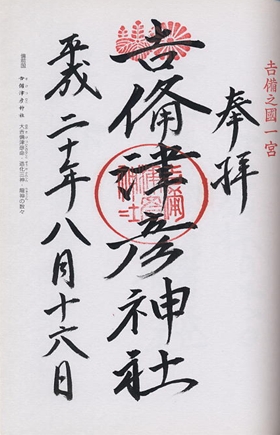 吉備之國一宮
奉拝
吉備津彦神社
平成二十年八月十六日
備前国
吉備津彦神社